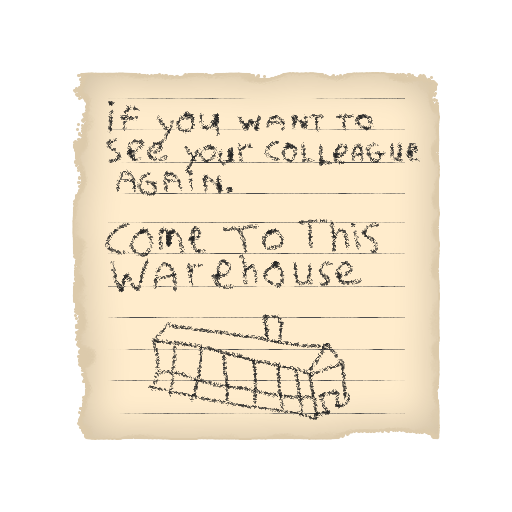 if you want to
see your colleague
again.
Come to This
Warehouse